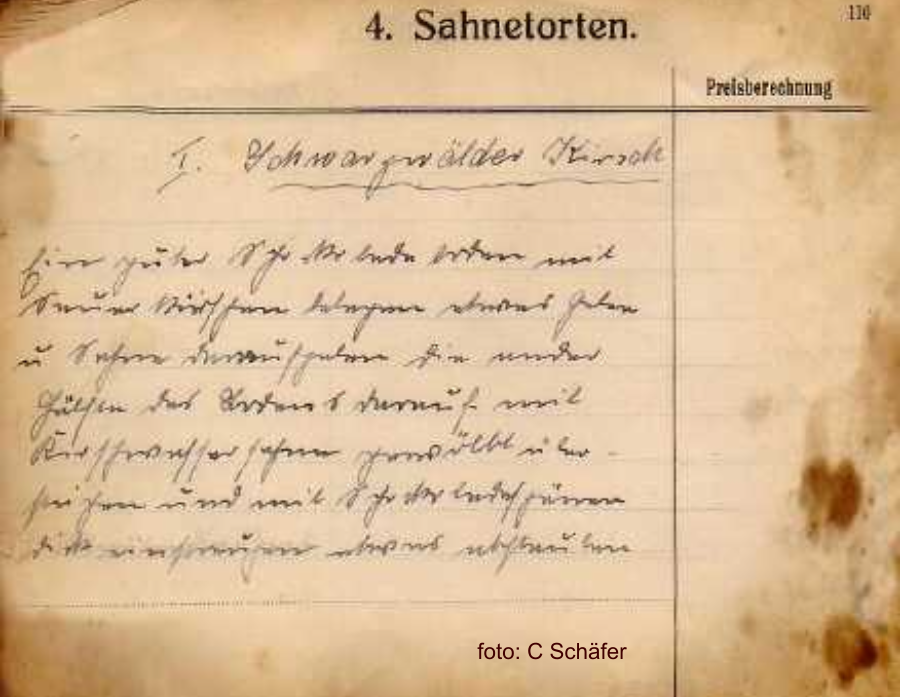 4. Sahnetorten.
116
Preisberechnung
I. Schwarzwälder Kirsch
Ein guter Schokolade Boden mit
Sauer Kirschen belegen etwas Gelee
u Sahne daraufgeben die ander
Hälfte des Bodens darauf mit
Kirschwassersahne gewölbt über-
streichen und mit Schokoladespänen
dick einstreuen etwas abstauben
foto: C Schäfer